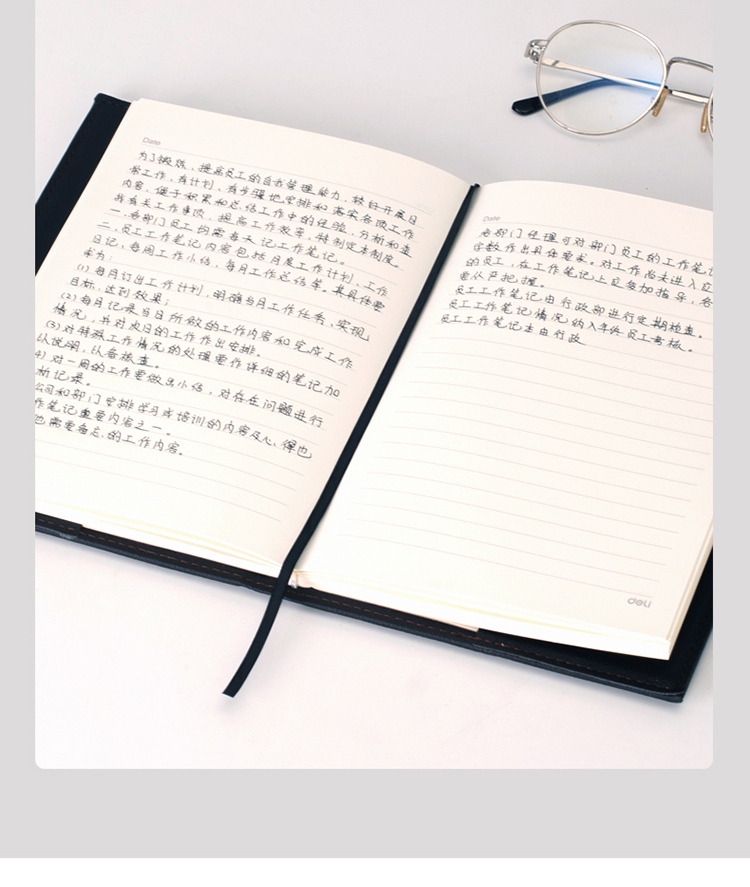 Date
为了锻炼、提高员工的自我管理能力，较好开展日
常工作，有计划、有步骤地安排和落实各项工作
内容，便于积累和总结工作中的经验，分析和查
找有关工作事项，提高工作效率，特制定本制度。
一、各部门员工均需每天记工作笔记。
二、员工工作笔记内容包括月度工作计划、工作
日记、每周工作小结、每月工作总结等。其具体要
求为：
(1) 每月订出工作计划，明确当月工作任务，实现
目标，达到效果；
(2) 每日记录当日所做的工作内容和完成工作
情况，并对次日的工作作出安排。
(3) 对特殊工作情况的处理要作详细的笔记加
以说明，认备核查。
4) 对一周的工作要做出小结，对存在问题进行
析记录。
公司和部门安排学习或培训的内容及心得也
作笔记重要内容之一。
他需要备忘的工作内容。
Date
各部门经理可对部门员工的工作笔记
字数作出具体要求。对工作尚未进入
的员工，在工作笔记上应多加指导，各
要从严把握。
员工工作笔记由行政部进行定期检查。
员工工作笔记情况纳入年终员工考核。
员工工作笔记本由行政
deli